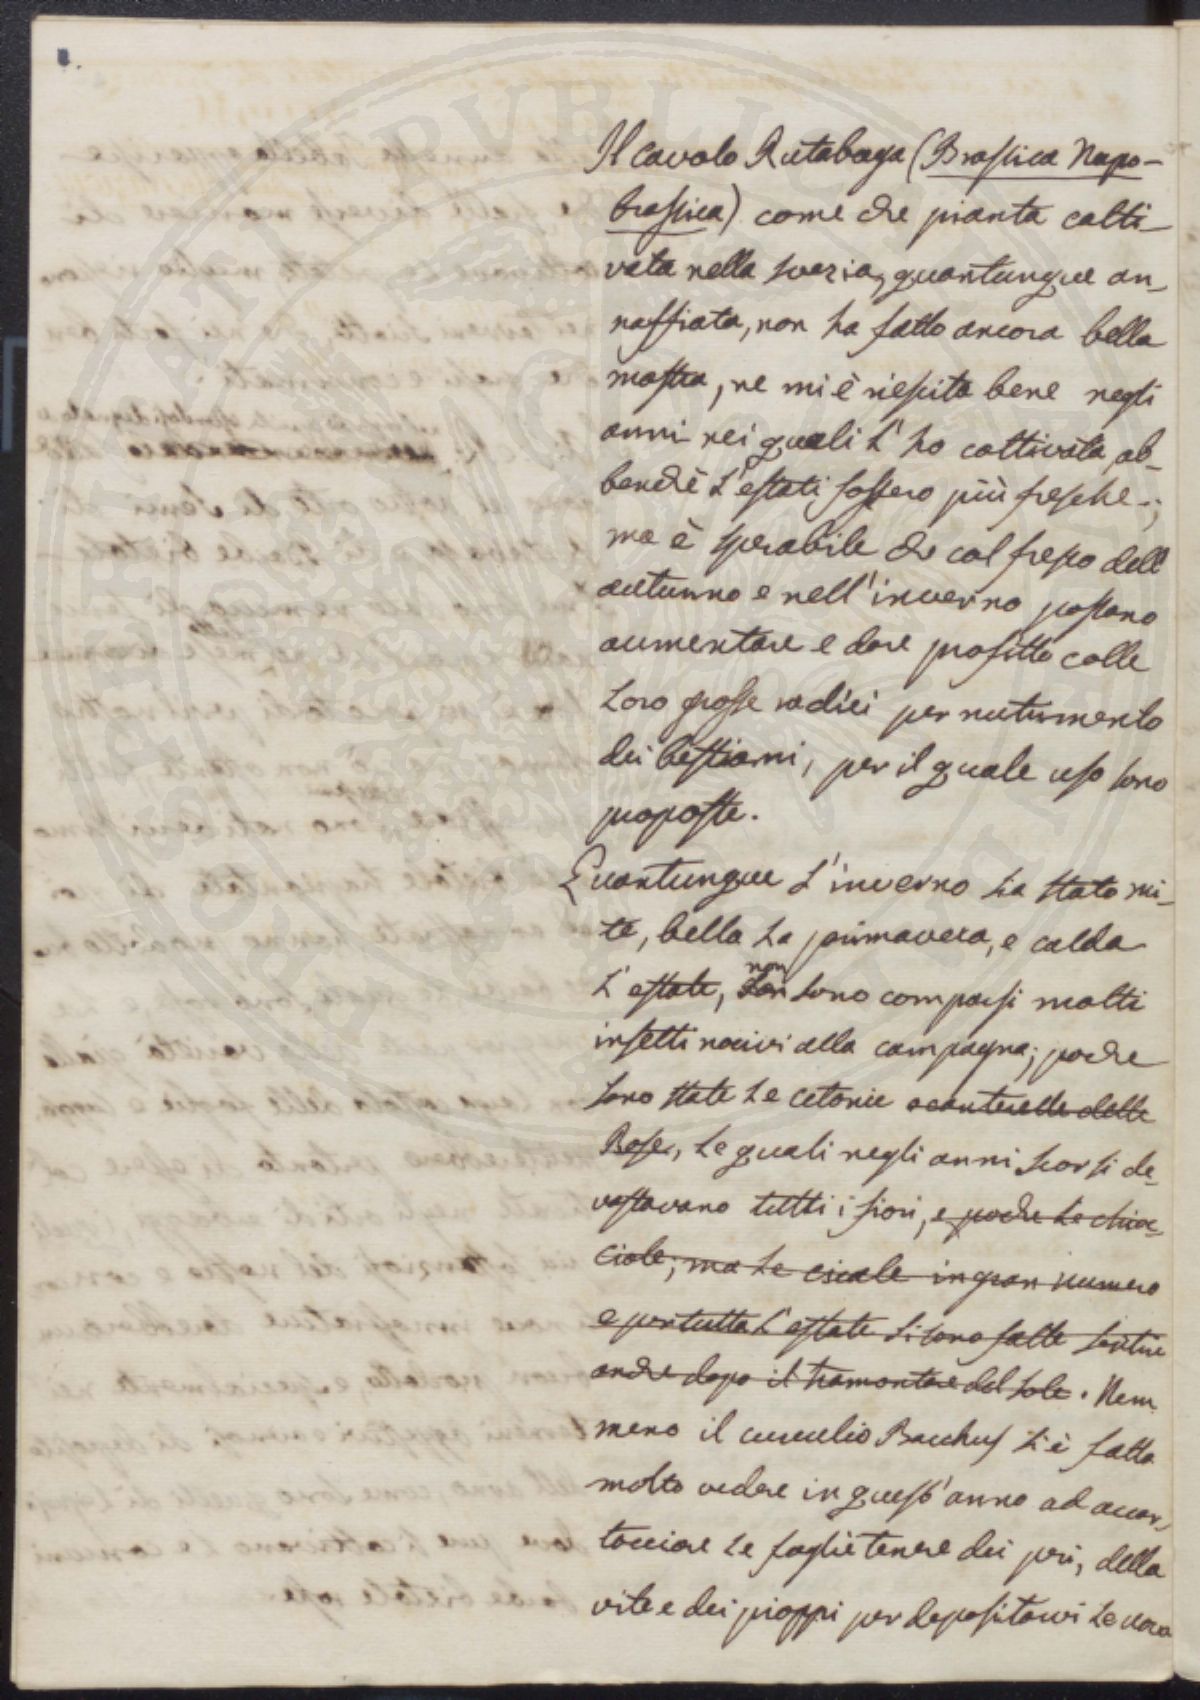 Il cavolo Rutabaga (Brassica Napo-
brassica) come che pianta colti-
vata nella Svezia, quantunque an-
naffiata, non ha fatto ancora bella
mostra, ne mi è riescita bene negli
anni nei quali l'ho coltivata, ab-
benchè l'estati fossero più fresche.;
ma è sperabile che col fresco dell'
autunno e nell'inverno possano
aumentare e dare profitto colle
loro grosse radici per nutrimento
dei bestiami, per il quale uso sono
proposte.
Quantunque l'inverno sia stato mi-
te, bella la primavera, e calda
l'estate, non sono comparsi molti
insetti nocivi alla campagna; poche
sono state le cetonie o canterelle delle
Rose, le quali negli anni scorsi de-
vastavano tutti i fiori, e poche le chioc-
ciole; ma le cicale in gran numero
e per tutta l'estate si sono fatte sentire
anche dopo il tramontare del sole. Nem
meno il curculio Bacchus si è fatto
molto vedere in quest'anno ad accar-
tocciare le foglie tenere dei peri, della
vite e dei pioppi per depositarvi le uova